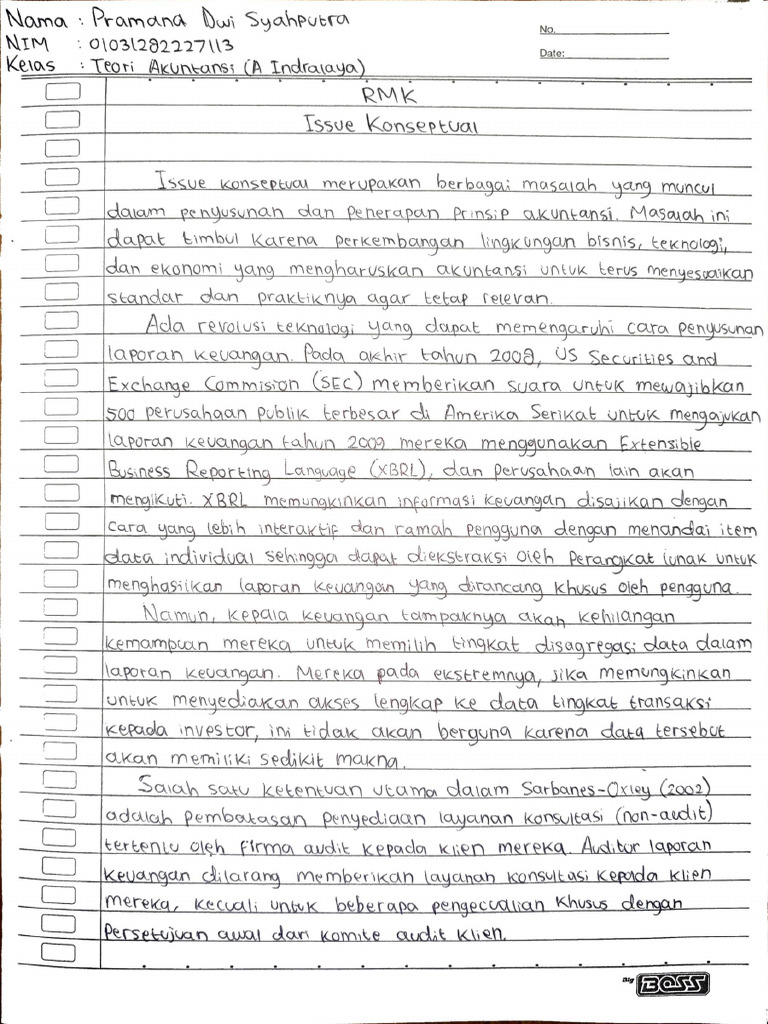 Nama : Pramana Dwi Syahputra
NIM : 01031282227113
Kelas : Teori Akuntansi (A Indralaya)
No.
Date:
RMK
Issue Konseptual
Issue konseptual merupakan berbagai masalah yang muncul
dalam penyusunan dan penerapan prinsip akuntansi. Masalah ini
dapat timbul karena perkembangan lingkungan bisnis, teknologi,
dan ekonomi yang mengharuskan akuntansi untuk terus menyesuaikan
standar dan praktiknya agar tetap relevan.
Ada revolusi teknologi yang dapat memengaruhi cara penyusunan
laporan keuangan. Pada akhir tahun 2008, US Securities and
Exchange Commision (SEC) memberikan suara untuk mewajibkan
500 perusahaan publik terbesar di Amerika Serikat untuk mengajukan
laporan keuangan tahun 2009 mereka menggunakan Extensible
Business Reporting Language (XBRL), dan perusahaan lain akan
mengikuti. XBRL memungkinkan informasi keuangan disajikan dengan
cara yang lebih interaktif dan ramah pengguna dengan menandai item
data individual sehingga dapat diekstraksi oleh perangkat lunak untuk
menghasilkan laporan keuangan yang dirancang khusus oleh pengguna.
Namun, kepala keuangan tampaknya akan kehilangan
kemampuan mereka untuk memilih tingkat disagregasi data dalam
laporan keuangan. Mereka pada ekstremnya, jika memungkinkan
untuk menyediakan akses lengkap ke data tingkat transaksi
kepada investor, ini tidak akan berguna karena data tersebut
akan memiliki sedikit makna.
Salah satu ketentuan utama dalam Sarbanes-Oxley (2002)
adalah pembatasan penyediaan layanan konsultasi (non-audit)
tertentu oleh firma audit kepada klien mereka. Auditor laporan
keuangan dilarang memberikan layanan konsultasi kepada klien
mereka, kecuali untuk beberapa pengecualian khusus dengan
persetujuan awal dari komite audit klien.
Big BOSS